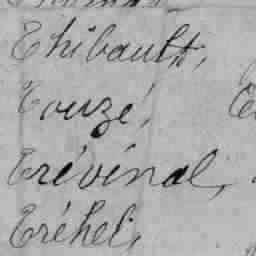 Thibault,
Touzé,
Trévinal,
Tréhel,